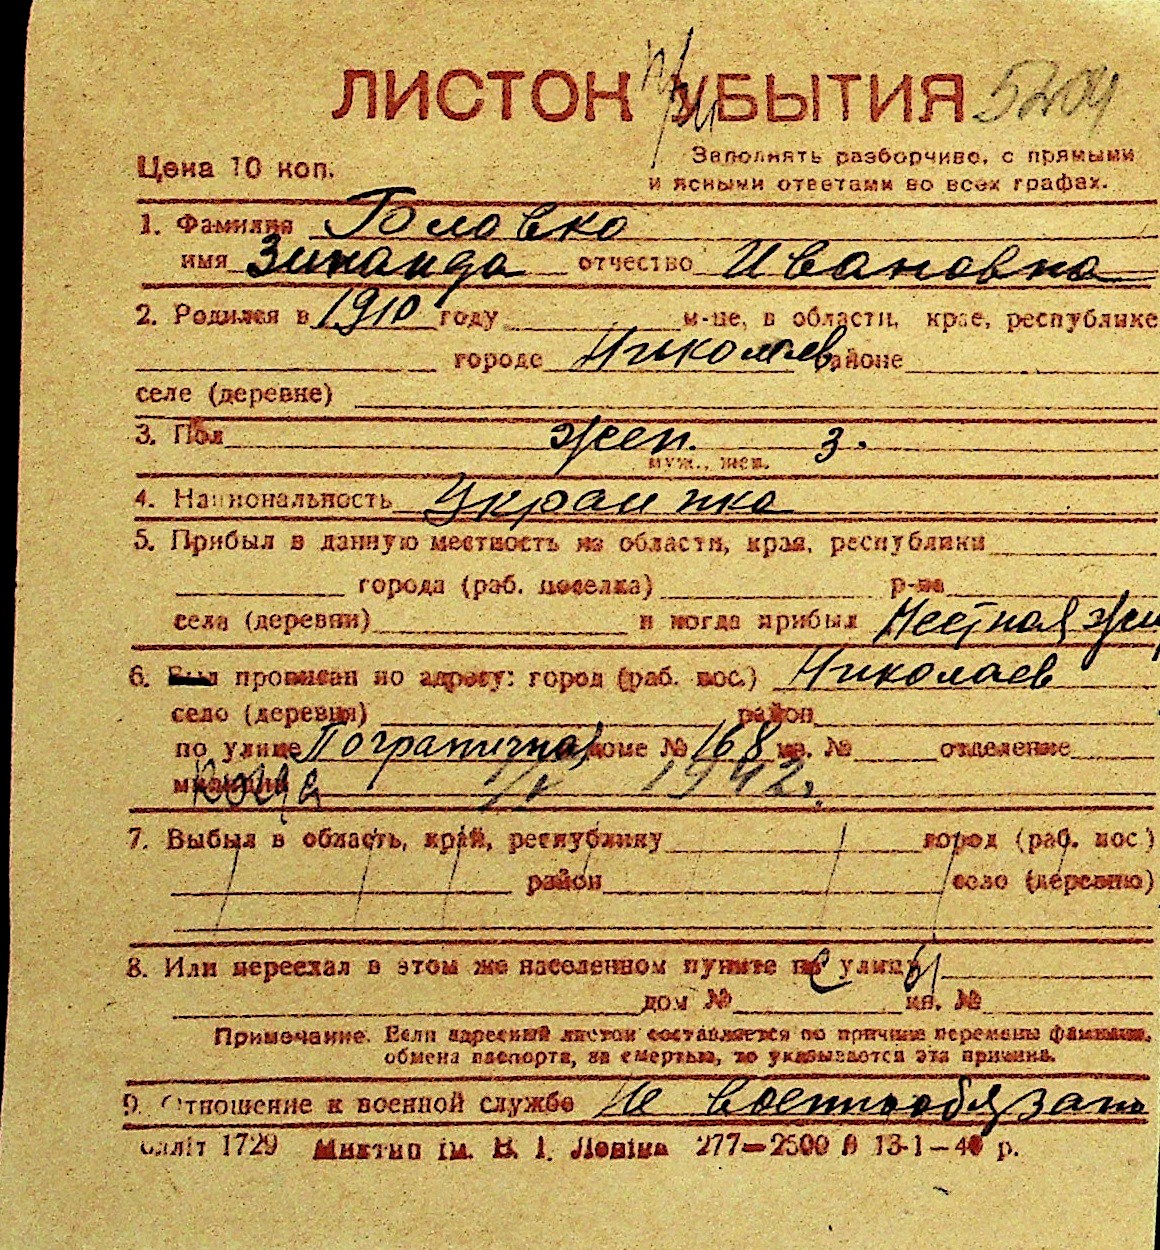 ЛИСТОК УБЫТИЯ 5204
Цена 10 коп.
Заполнять разборчиво, с прямыми
и ясными ответами во всех графах.
1. Фамилия Головко
имя Зинаида отчество Ивановна
2. Родился в 1910 году м-це, в области, крае, республике
городе Николаев районе
селе (деревне)
3. Пол жен. з.
муж., жен.
4. Национальность Украинка
5. Прибыл в данную местность из области, края, республики
города (раб. поселка) р-на
села (деревни) и когда прибыл Местная жи
6. Был прописан по адресу: город (раб. пос.) Николаев
село (деревня) район
по улице Погранична доме № 168 кв. № отделение
милиции когда 1942 г.
7. Выбыл в область, край, республику город (раб. пос.)
район село (деревню)
8. Или переехал в этом же населенном пункте на улицу
дом № кв. №
Примечание. Если адресный листок составляется по причине перемены фамилии,
обмена паспорта, за смертью, то указывается эта причина.
9. Отношение к военной службе Не военнообязана
1729 Миктип ім. В. І. Леніна 277—2500 13-1—40 р.